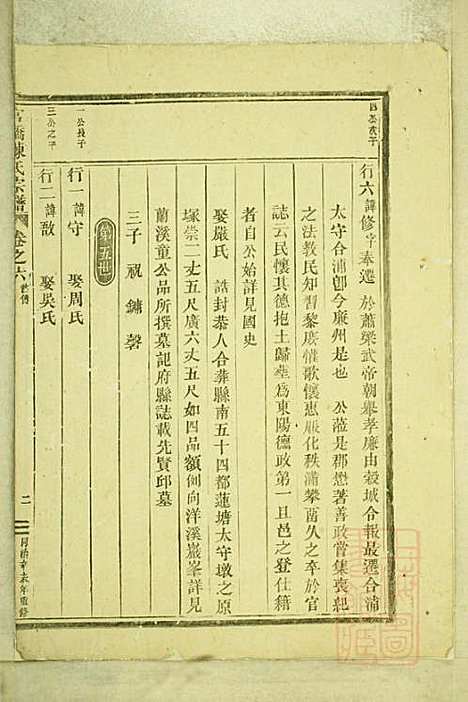 四公次子
行六諱修字奉遷於蕭梁武帝朝舉孝廉由穀城令報最選合浦
太守合浦卽今廉州是也　公蒞是郡懋著善政嘗集喪紀
之法教民知習黎庶惜歌懷惠服化秩滿攀留久之卒於官
誌云民懷其德抱土歸塟爲東陽德政第一且邑之登仕籍
者自公始詳見國史
娶嚴氏　誥封恭人合葬縣南五十四都蓮塘太守墩之原
塚崇二丈五尺廣六丈五尺如四品額倒向洋溪巖峯詳見
蘭溪童公品所撰墓記府縣誌載先賢邱墓
三子　祝　鏞　磬
第五世
一公長子
行一諱守　娶周氏
三公之子
行二諱敔　娶吳氏
橋陳氏宗譜
卷之六
世傳
二
年重修